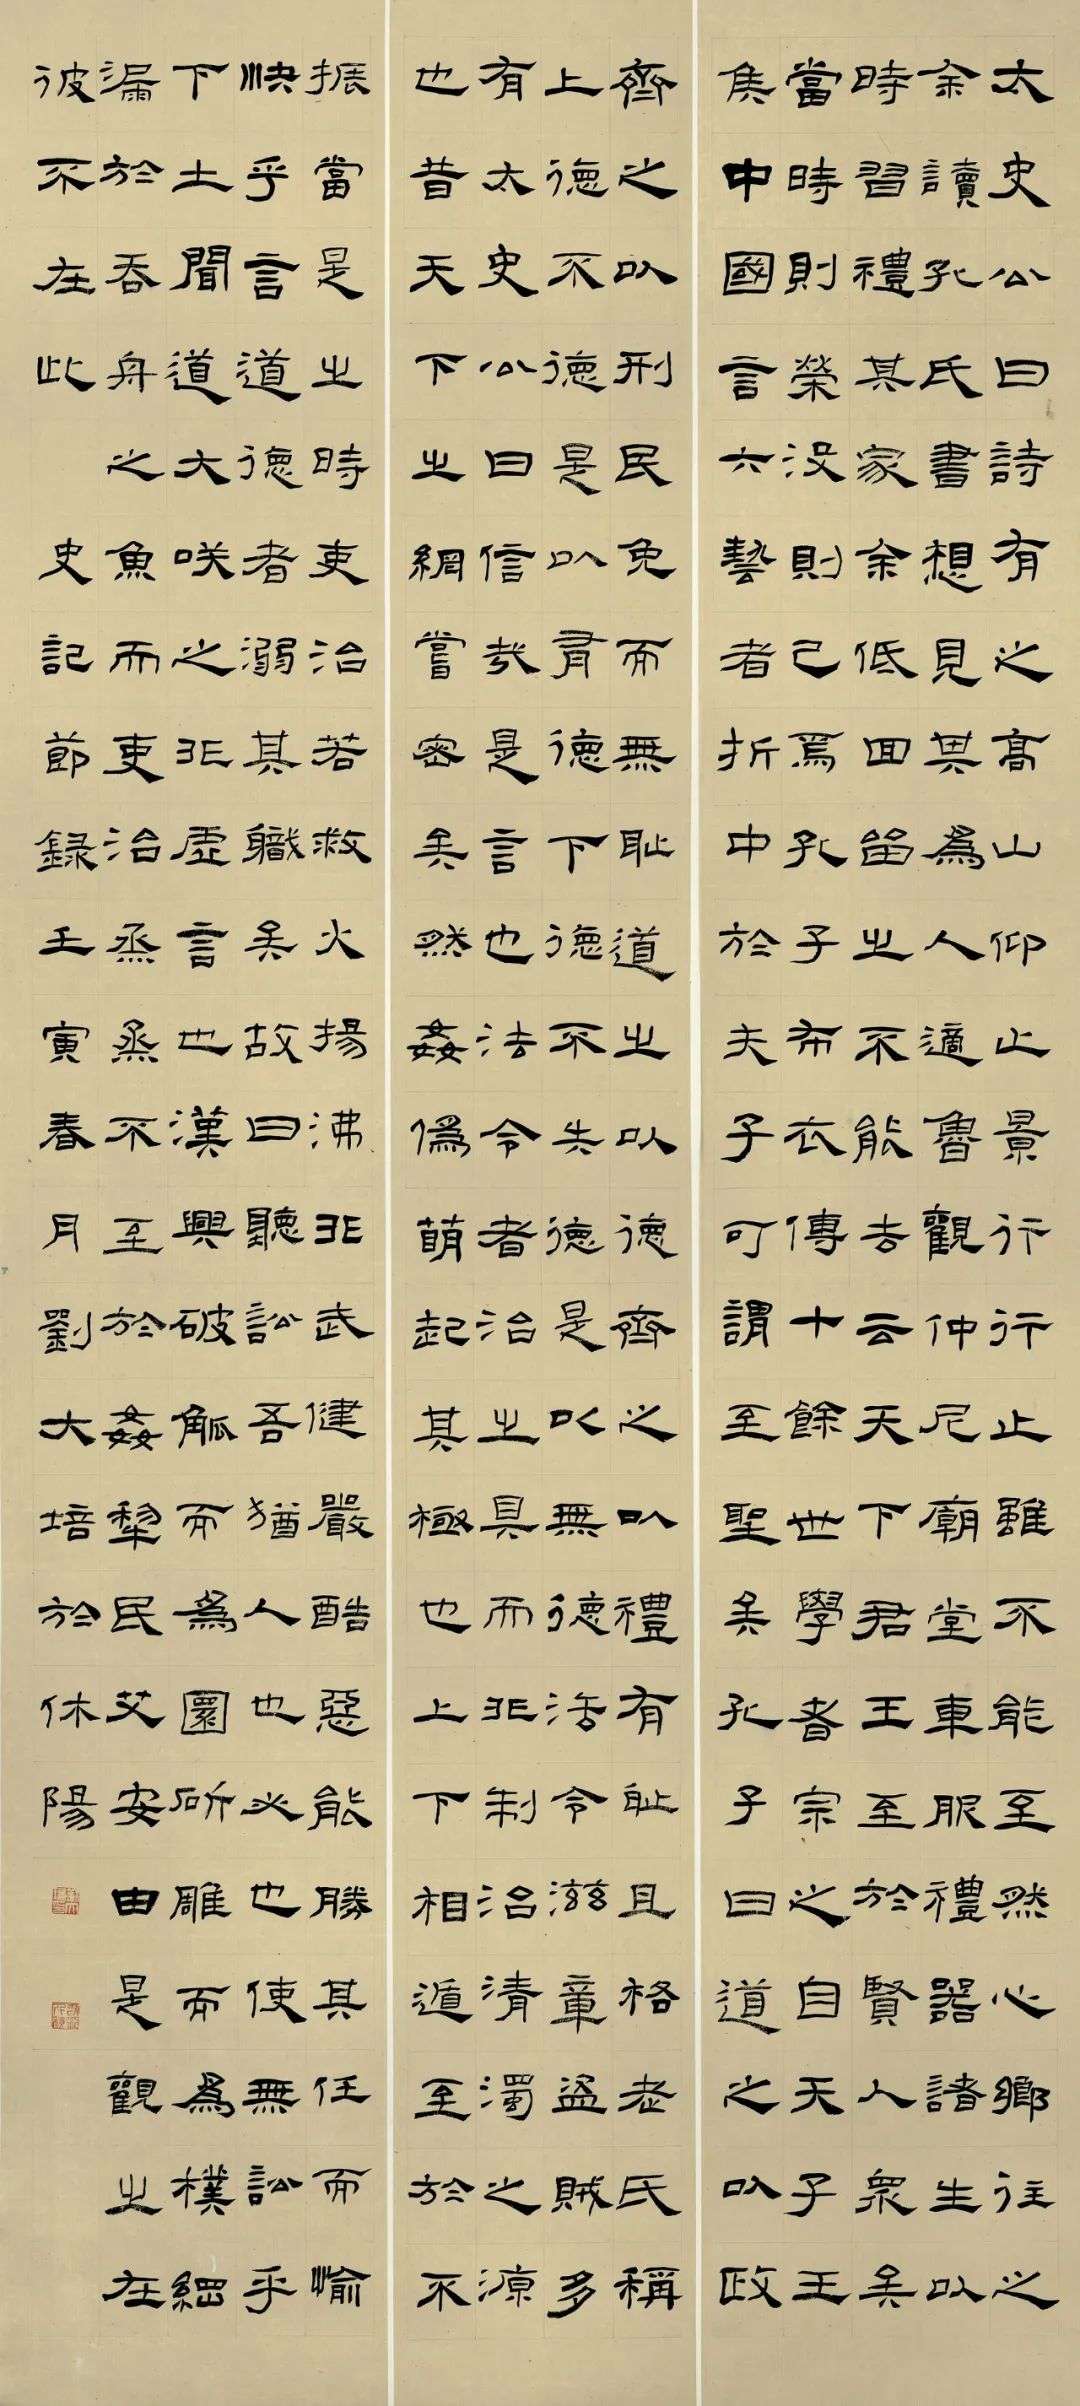 太史公曰詩有之高山仰止景行行止雖不能至然心鄉往之
余讀孔氏書想見其為人適魯觀仲尼廟堂車服禮器諸生以
時習禮其家余低回留之不能去云天下君王至於賢人眾矣
當時則榮沒則已焉孔子布衣傳十餘世學者宗之自天子王
矦中國言六藝者折中於夫子可謂至聖矣孔子曰道之以政
齊之以刑民免而無耻道之以德齊之以禮有耻且格老氏稱
上德不德是以有德下德不失德是以無德法令滋章盜賊多
有太史公曰信哉是言也法令者治之具而非制治清濁之源
也昔天下之網嘗密矣然姦偽萌起其極也上下相遁至於不
振當是之時吏治若救火揚沸非武健嚴酷惡能勝其任而愉
快乎言道德者溺其職矣故曰聽訟吾猶人也必也使無訟乎
下士聞道大咲之非虛言也漢興破觚而為圜斫雕而為樸網
漏於吞舟之魚而吏治烝烝不至於姦犂民艾安由是觀之在
彼不在此 史記節錄壬寅春月劉大培於休陽